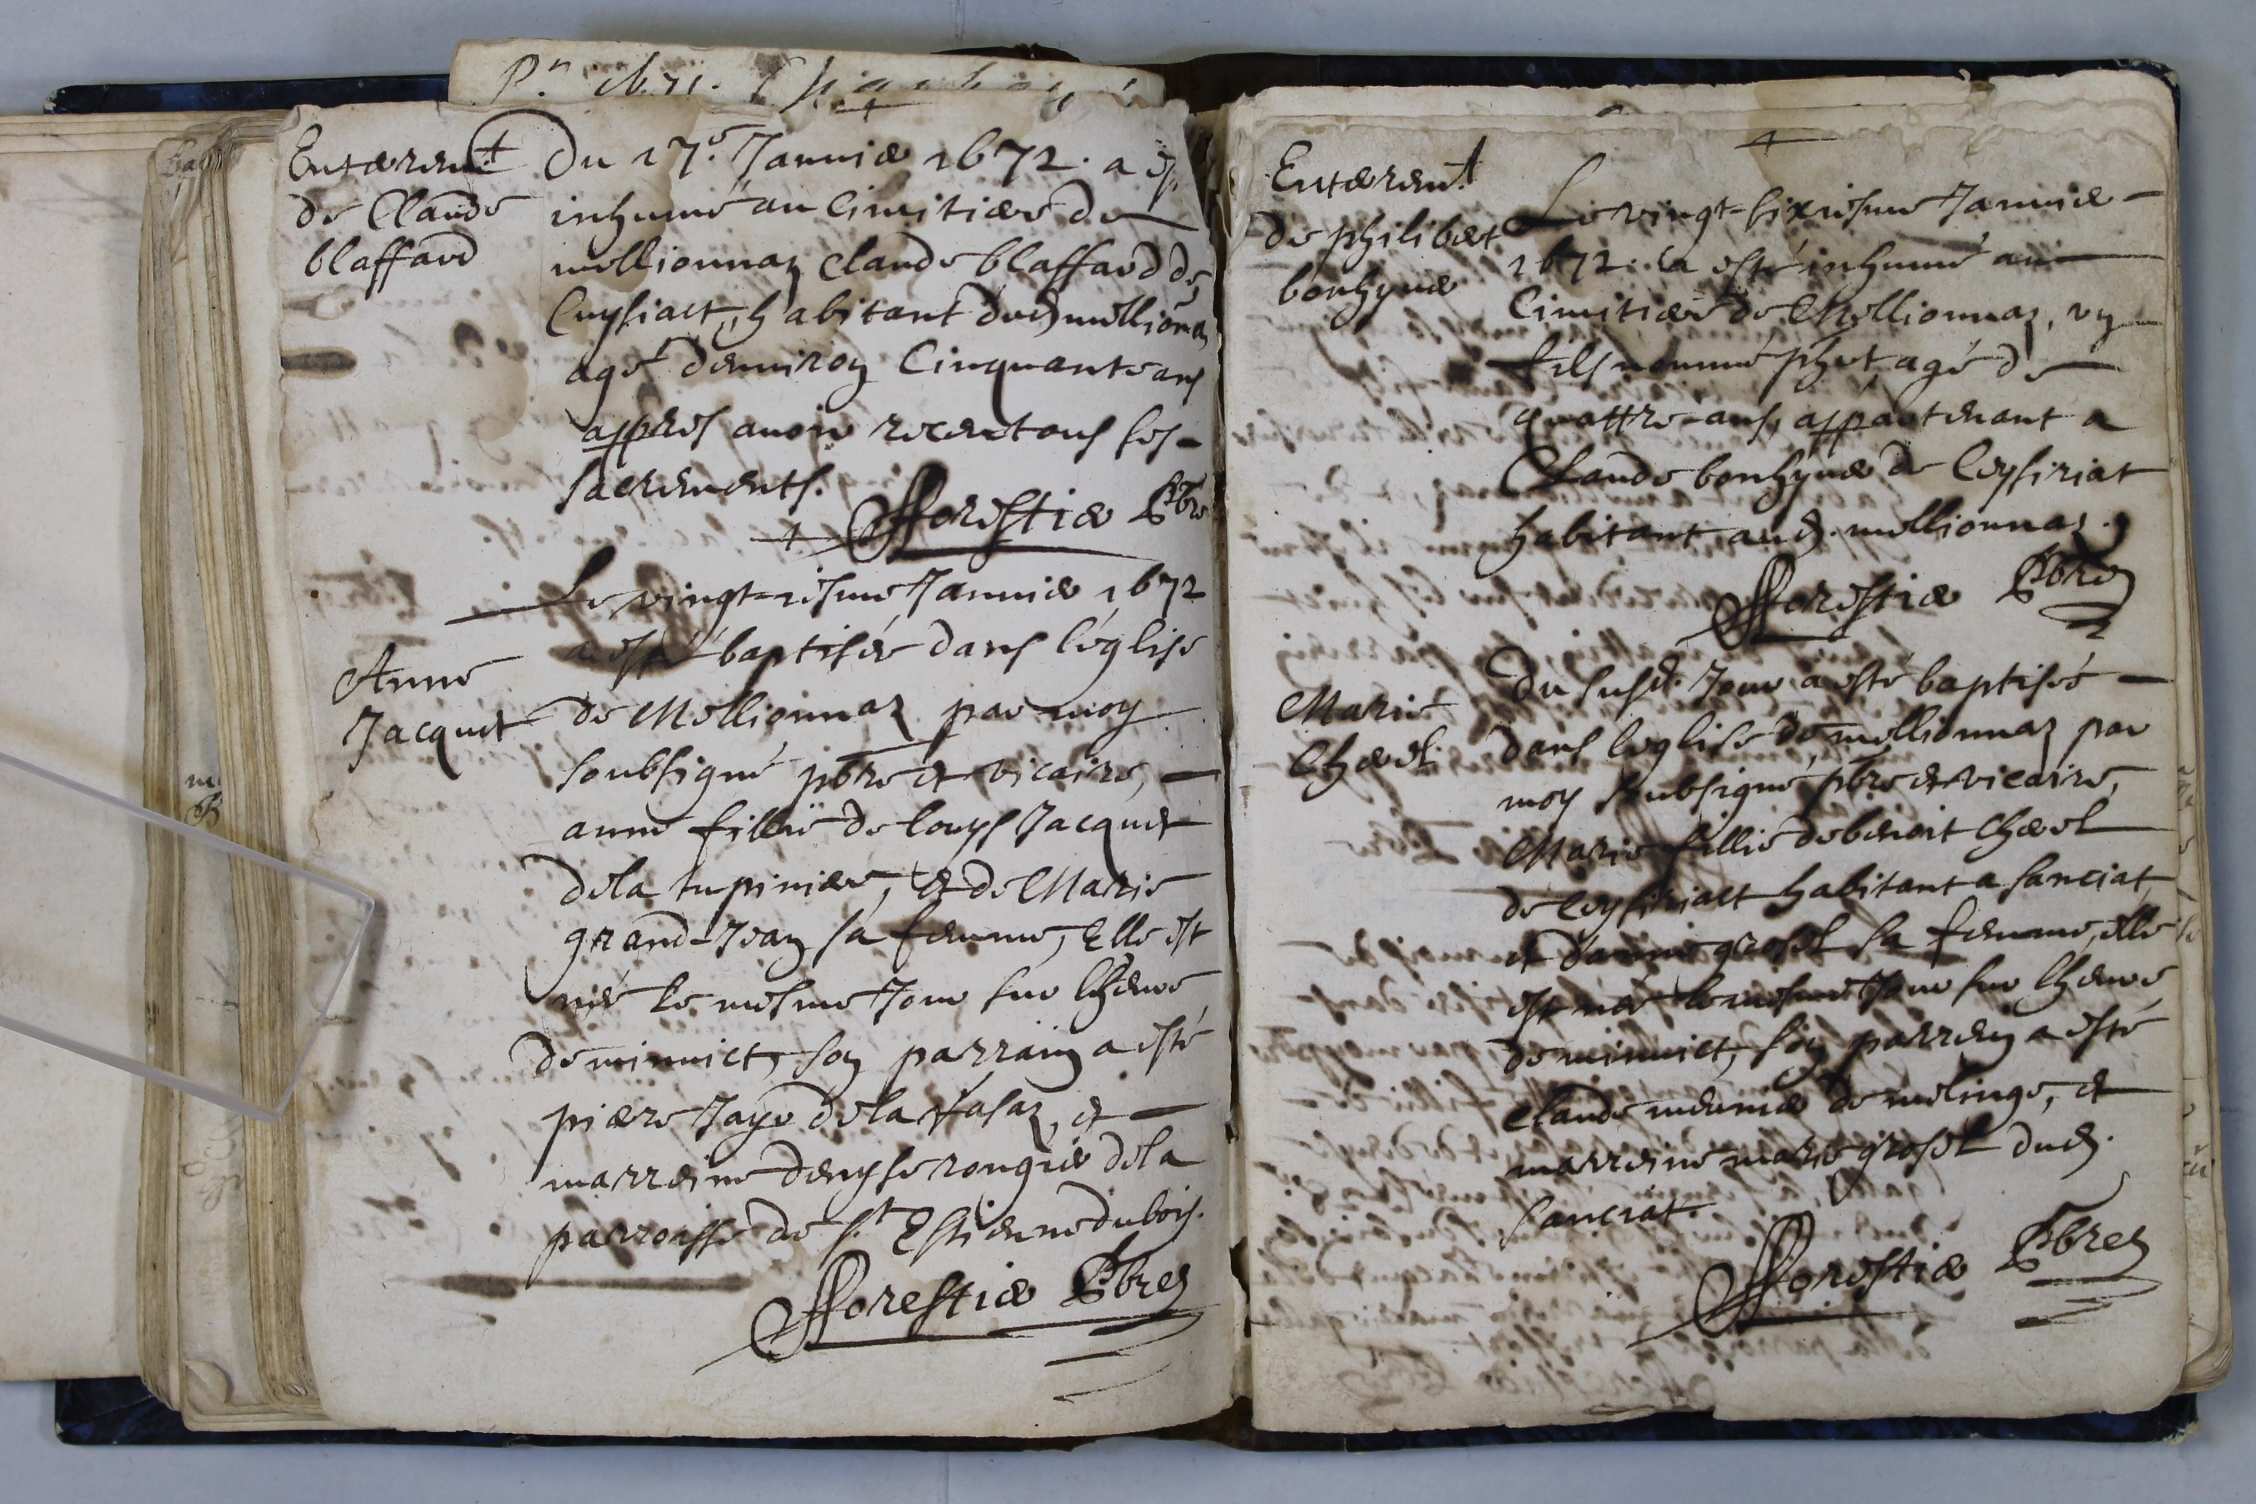 Enterem.t
de Claude
blaffard
Du 17.e Janvier 1672. a esté
inhumé au Cimitiere de
mellionnaz Claude blaffard de
Cuysiact, habitant dud mellionaz
agé denviron Cinquante ans
appres avoir receu tous ses
sacrements.
fforestier Pbre
Le vingt-iesme Janvier 1672
a esté baptisée dans l'eglise
Anne
Jacquet
de Mellionnaz par moy
soubsigné pbre et vicaire,
anne fillie de louys Jacquet
de la tupiniere, et de Marie
grand-Jean sa femme, Elle est
née le mesme Jour sur lheure
de minuict, son parrain a esté
pierre Jaye de la
marreine denyse rongier de la
parroisse de s.t Estienne du bois.
fforestier Pbre
Enterem.t
de philibert
bonhyver
Le vingt-sixiesme Janvier
1672. a esté inhumé au
Cimitiere de Mellionnaz, un
fils nommé phet agé de
quattre-ans, appartenant a
Claude bonhyver de Ceysiriat
habitant aud. mellionnaz.
fforestier Pbre
Marie
Chervel.
Du susd. Jour a esté baptisée
dans l'eglise de mellionnaz par
moy soubsigné pbre et vicaire,
Marie fillie de benoit Chervel
de Ceysiriact habitant a sanciat,
et d'anne grosel sa femme, elle
est née le mesme Jour sur lheure
de minuict, son parrein a esté
Claude meunier de molinge, et
marreine marie grosel dud.
Sanciat.
fforestier Pbre